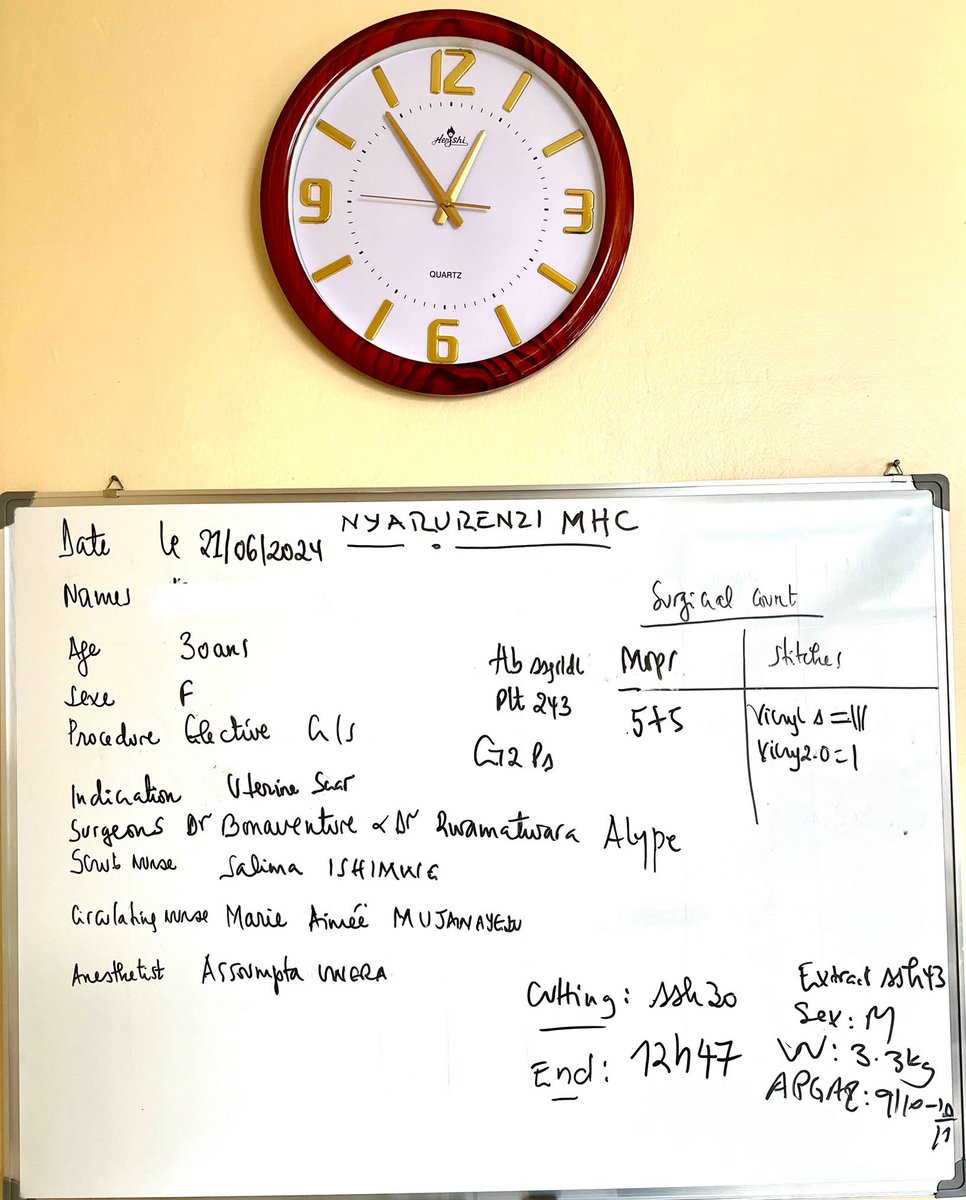 12
Henshi
9
3
QUARTZ
6
NYARURENZI MHC
Date le 21/06/2024
Names
Surgical count
Age 30ans
Hb 11g/dl Mops Stitches
Sexe F
Plt 243
5+5 Vicryl 1 = III
Procedure Elective C/S
G2 P1 Vicryl 2.0 = 1
Indication Uterine Scar
Surgeons Dr Bonaventure & Dr Rwamatwara Alype
Scrub nurse Salima ISHIMWE
Circulating nurse Marie Aimée
Anesthetist Assoumpta UWERA
Cutting: 11h30
Extract 11h43
Sex: M
End: 12h47
W: 3.3kg
APGAR: 9/10-10